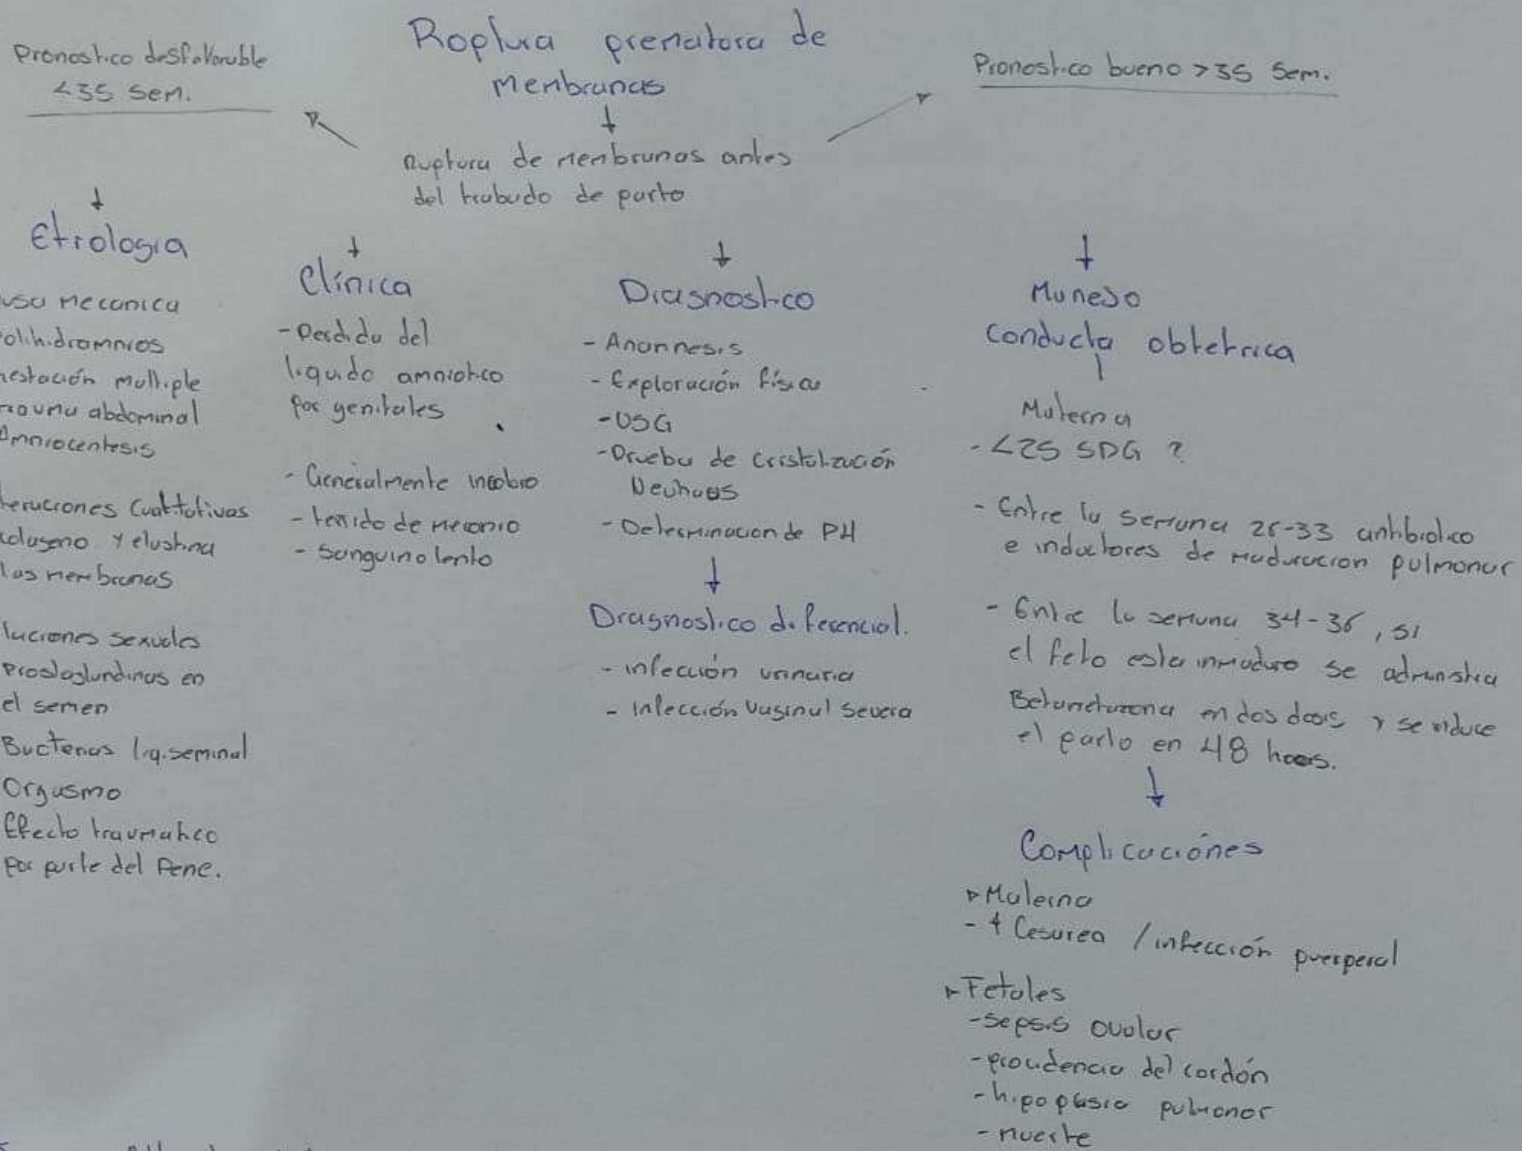 Roptura prematora de
menbranas
Pronostico desfavoruble
<35 sem.
Pronostico bueno >35 sem.
Ruptura de menbranas antes
del trabado de parto
Etiologia
usa mecanica
olihidromnios
estación multiple
rauma abdominal
Amniocentesis
teraciones Cualitativas
colageno y elastina
las menbranas
laciones sexuales
Prostaglandinas en
el semen
Bacterias liq.seminal
Orgasmo
Efecto traumatico
por parte del Pene.
Clínica
- Perdida del
liquido amniotico
por genitales
- Generalmente incoloro
- teñido de meconio
- sanguinolento
Diagnostico
- Anamnesis
- Exploración física
- USG
- Prueba de Cristalización
- Determinacion de PH
Diagnostico diferencial.
- infección urinaria
- infección vaginal severa
Manejo
conducta obtetrica
Materna
- <25 SDG ?
- Entre la semana 26-33 antibiotico
e inductores de maduracion pulmonar
- Entre la semana 34-36, si
el feto esta inmaduro se administra
Betametazona en dos dosis y se induce
el parto en 48 horas.
Complicaciónes
Materna
- ↑ Cesarea / infección puerperal
Fetales
- sepsis ovular
- procidencia del cordón
- hipoplasia pulmonar
- muerte